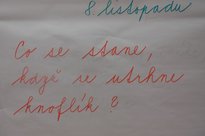 8. listopadu
Co se stane,
když se utrhne
knoflík?